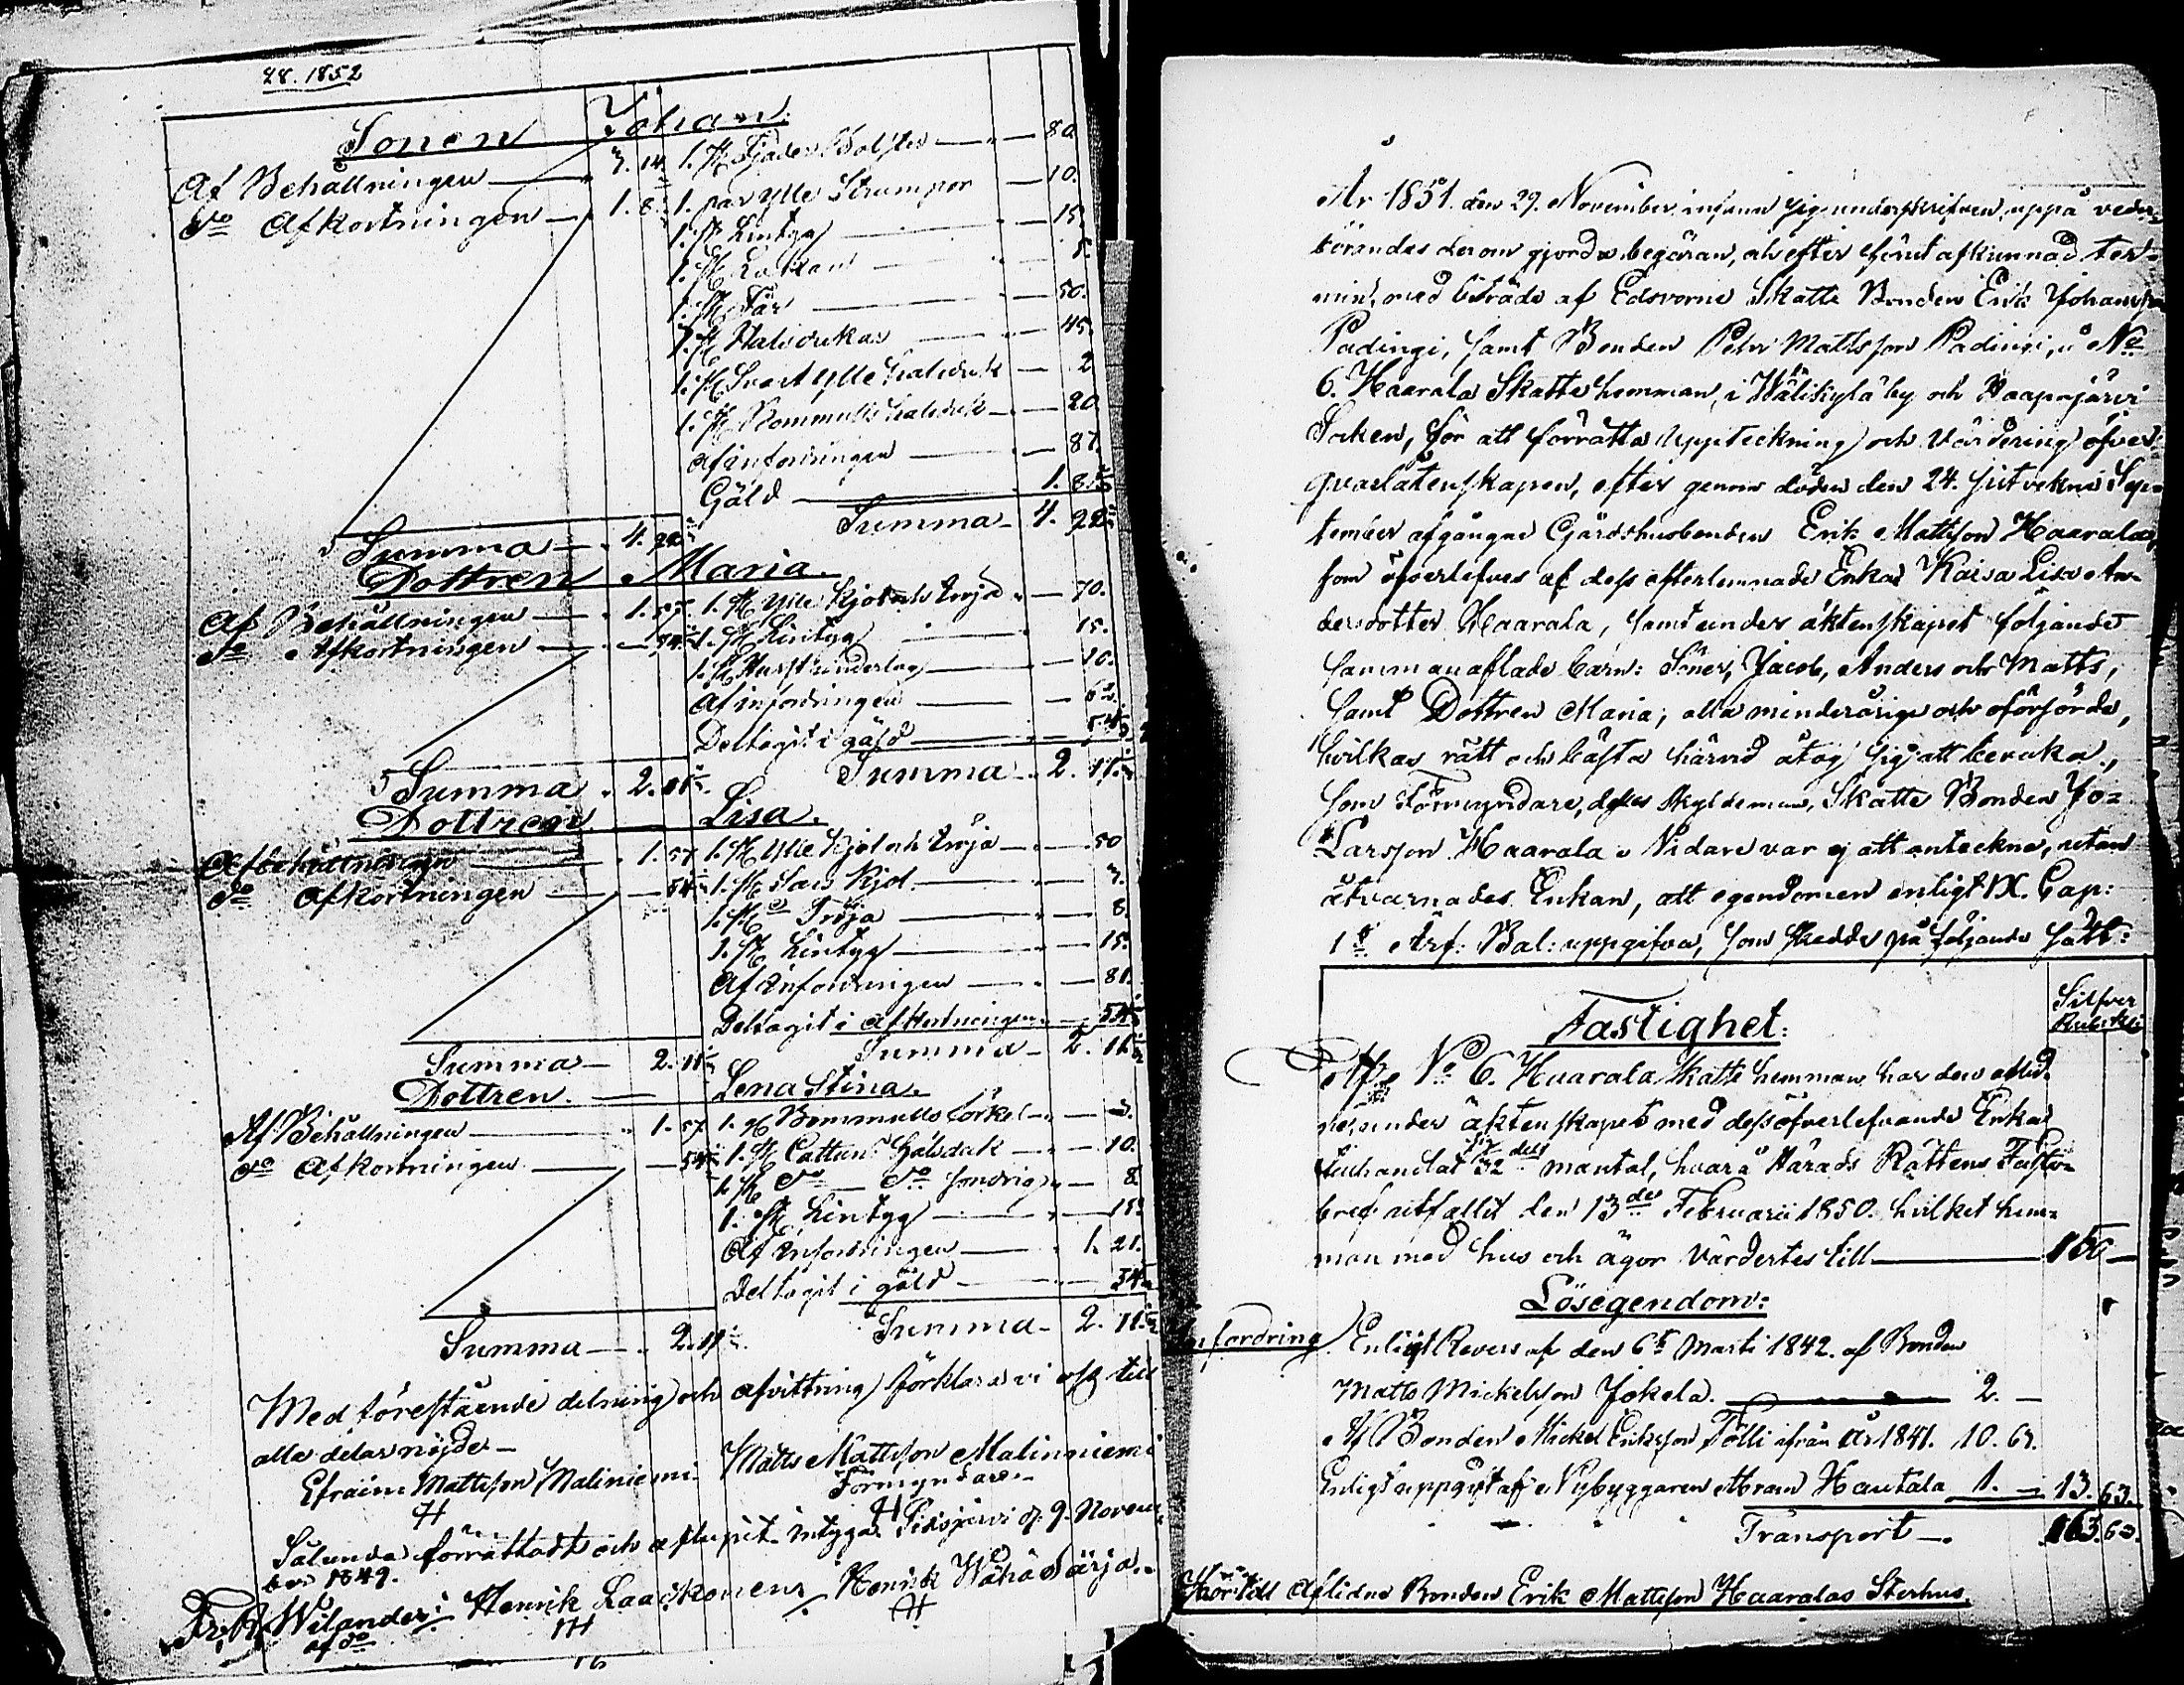 28. 1852
Sonen Johan.
Af Behållningen — 3. 14 1. st Fjäder Bolster — 80.
d:o Afkortningen — 1. 8. 1. par ylle Strumpor — 10.
1. st Lintyg — 15
1. st Lakan — 5.
1. st Får — 50.
st Halsdukar — 45
1. st Svart ylle halsduk — 2
1. st Bommulls halsduk — 20
af infordringen — 87.
Gäld — 1. 8.
Summa — 4. 22 Summa — 4. 22
Dottren Maria.
Af Behållningen — 1. 57 1. st ylle kjol och tröja — 70.
d:o Afkortningen — 54 1. st Lintyg — 15.
1. st — 10.
Af infordringen — 62.
Deltagit i gäld — 54
Summa . 2. 11 Summa . 2. 11
Dottren — Lisa.
Af behållningen — 1. 57 1. st ylle kjol och tröja — 50
d:o Afkortningen — 54 1. st kjol — 3.
1. st Tröja — 8.
1. st Lintyg — 15.
Af infordringen — 81.
Deltagit i afkortningen — 54
Summa — 2. 11 Summa — 2. 11
Dottren. — Lena Stina.
Af Behållningen — 1. 57 1. st Bommulls förkel — 3.
d:o Afkortningen — 54 1. st Cattuns halsduk — 10.
1. st d:o — d:o söndrig — 8.
1. st Lintyg — 15.
Af infordringen — 1. 21.
Deltagit i gäld — 54
Summa — 2. 11 Summa — 2. 11
Med förestående delning och afvittring förklara vi oss till
alla delar nöjde —
Efraim Mattsson Maliniemi Matts Mattsson Malinniemi
Förmyndare
Sålunda förrättadt och aflupit intyga. Pidisjärvi d. 9. Novem-
ber 1849.
Fr. A. Wilander / Henrik Laaskonen / Henrik Wähä Särja.
af d:o
År 1851. den 29. November infann sig undertskrifven, uppå veder-
börandes derom gjorde begäran, och efter förut afkunnad ter-
min, med biträde af Edsvorne Skatte Bonden Erik Johansson
Padingi, samt Bonden Pehr Mattsson Padingi, å N:o
6. Haarala Skattehemman, i Wäliskylä by och Haapajärvi
Socken, för att förrätta Uppteckning och Värdering öfver
qvarlåtenskapen, efter genom döden den 24. sistvekne Sep-
tember afgångne Gårdshusbonden Erik Mattsson Haarala,
som öfverlefves af dess efterlemnade Enka Kaisa Lisa An-
dersdotter Haarala, samt under äktenskapet följande
sammanaflade barn: Söner, Jacob, Anders och Matts,
samt Dottren Maria; alla minderårige och oförsörde,
hvilkas rätt och bästa härvid åtog sig att bevaka,
som Förmyndare, deras Skyldeman, Skatte Bonden Jo-
Larsson Haarala. Vidare var ej att anteckna, utan
åtvarnades Enkan, att egendomen enligt IX. Cap:
1 § Ärf: Bal: uppgifva, som skedde på följande sätt:
Fastighet: Silfver
Rub. Kop.
Af N:o 6. Haarala Skatte hemman har den aflid-
ne under äktenskapet med dess öfverlefvande Enka
tillhandlat 32 dels mantal, hvarå Härads Rättens Faste-
bref utfallit den 13 de Februarii 1850. hvilket hem-
man med hus och ägor värdertes till — 150 —
Lösegendom:
Infordring Enligt Revers af den 6 t Marti 1842. af Bonden
Matts Mickelsson Jokela. — 2. —
Af Bonden Mickel Eriksson Tölli ifrån År 1841. 10. 63.
Enligt uppgift af Nybyggaren Abram Hautala 1. — 13. 63.
Transport — 163. 63.
Hör till Aflidne Bonden Erik Mattsson Haaralas Sterbhus.